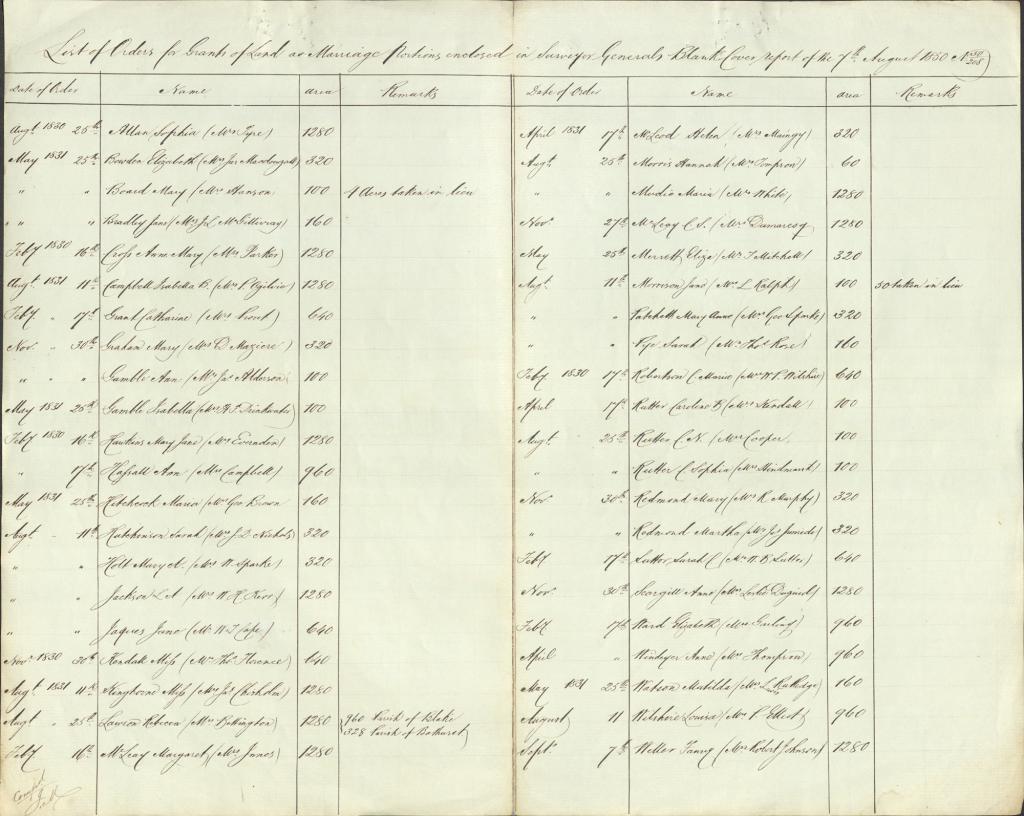 List of Orders for Grants of Land as Marriage Portions enclosed in Surveyor Generals Blank Cover report of the 7th August 1850 No 50/208
Date of Order Name area Remarks
Augt 1830 25th Allan Sophia (Mrs Tyre) 1280
May 1831 25th Bowden Elizabeth (Mrs Jas Macdougall) 320
" " Board Mary (Mrs Hanson 100 4 Acres taken in lieu
" " " Bradley Jane (Mrs J.L. McGillivray) 160
Feby 1830 16th Cross Anne Mary (Mrs Parker) 1280
Augt 1831 11th Campbell Isabella B. (Mrs P. Ogilvie) 1280
Feby " 17th Grant Catharine (Mrs ) 640
Nov. " 30th Graham Mary (Mrs D. Maziere) 320
" " " Gamble Ann (Mrs Jas Alderson) 100
May 1831 25th Gamble Isabella (Mrs H.F. Drinkwater) 100
Feby 1830 16th Hawkins Mary Jane (Mrs Evernden) 1280
" 17th Hassall Ann (Mrs Campbell) 960
May 1831 25th Hitchcock Maria (Mrs Geo Brown 160
Augt " 11th Hutchinson Sarah (Mrs J.D. Nichols) 320
" " Holt Mary A. (Mrs W. Sparke) 320
" " Jackson L A (Mrs W.H. Kerr) 1280
" " Jaques Jane (Mrs W.J. Cape) 640
Novr 1830 30th Kendall Miss (Mrs Thos Florence) 640
Augt 1831 11th Kinghorne Miss (Mrs Jas Chisholm) 1280
Augt " 25th Lawson Rebecca (Mrs Bettington) 1280 960 Parish of Blake
328 Parish of Bathurst
Feby 16th McLeay Margaret (Mrs Innes) 1280
Date of Order Name area Remarks
April 1831 17th McLeod Helen (Mrs Maingy) 320
Augt 25th Morris Hannah (Mrs Tompson) 60
" " Mudie Maria (Mrs White) 1280
Nov. 27th McLeay C.S. (Mrs Dumaresq 1280
May 25th Merrett Eliza (Mrs J Mitchell) 320
Augt 11th Morrison Jane (Mrs L. Ralph) 100 50 taken in lieu
" " Patchett Mary Anne (Mrs Geo Sparke) 320
" " Pye Sarah (Mrs Thos Rose) 160
Feby 1830 17th Robertson C. Maria (Mrs W.P. Wilshire) 640
April 17th Rutter Caroline B. (Mrs Kendall) 100
Augt 25th Rutter C.N. (Mrs Cooper. 100
" " Rutter C Sophia (Mrs Hindmarsh) 100
Nov. 30th Redmond Mary (Mrs R. Murphy) 320
" " Redmond Martha (Mrs Jas ) 320
Feby 17th Suttor Sarah C. (Mrs W.B. Suttor) 640
Nov. 30th Scargill Anne (Mrs Leslie Duguid) 1280
Feby 17th Ward Elizabeth (Mrs Garling) 960
April " Windeyer Anne (Mrs Thompson) 960
May 1831 25th Watson Matilda (Mrs L Rutledge) 160
August 11 Wilshire Louisa (Mrs P. Elliot) 960
Sept. 7th Weller Fanny (Mrs Robert Johnson) 1280